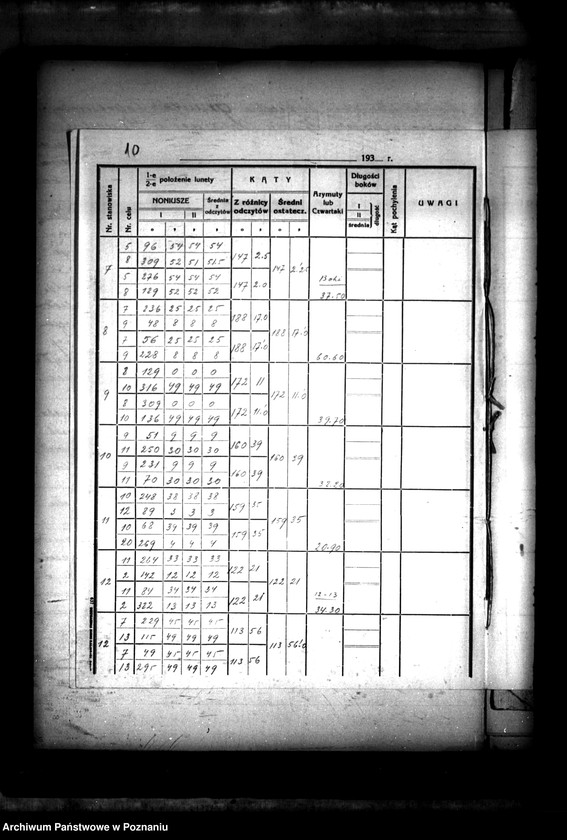 10
193 r.
Nr. stanowiska
Nr. celu
1-e
2-e położenie lunety
NONIUSZE
I II
Średnia z odczytów
KĄTY
Z różnicy odczytów
Średni ostatecz.
Azymuty lub Czwartaki
Długości boków
I
II
średnia
długość
Kąt pochylenia
UWAGI
7
5 96 54 54 54 147 2.5
8 309 52 51 51.5 147 2.25
5 276 54 54 54 147 2.0
8 129 52 52 52 37.50
8
7 236 25 25 25 188 17.0
9 48 8 8 8 188 17.0
7 56 25 25 25 188 17.0
9 228 8 8 8 60.60
9
8 129 0 0 0 172 11
10 316 49 49 49 172 11.0
8 309 0 0 0 172 11.0
10 136 49 49 49 39.70
10
9 51 9 9 9 160 39
11 250 30 30 30 160 39
9 231 9 9 9 160 39
11 70 30 30 30 32.20
11
10 248 38 38 38 159 35
12 89 3 3 3 159 35
10 68 39 39 39 159 35
20 269 4 4 4 20.90
12
11 264 33 33 33 122 21
2 142 12 12 12 122 21
11 84 34 34 34 122 21 12-13
2 322 13 13 13 34.30
12
7 229 45 45 45 113 56
13 115 49 49 49 113 56.0
7 49 45 45 45 113 56
13 295 49 49 49
Archiwum Państwowe w Poznaniu